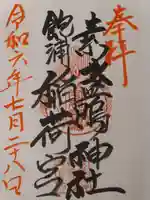 奉拝
素盞嗚神社
飽浦稲荷宮
令和六年七月二十八日